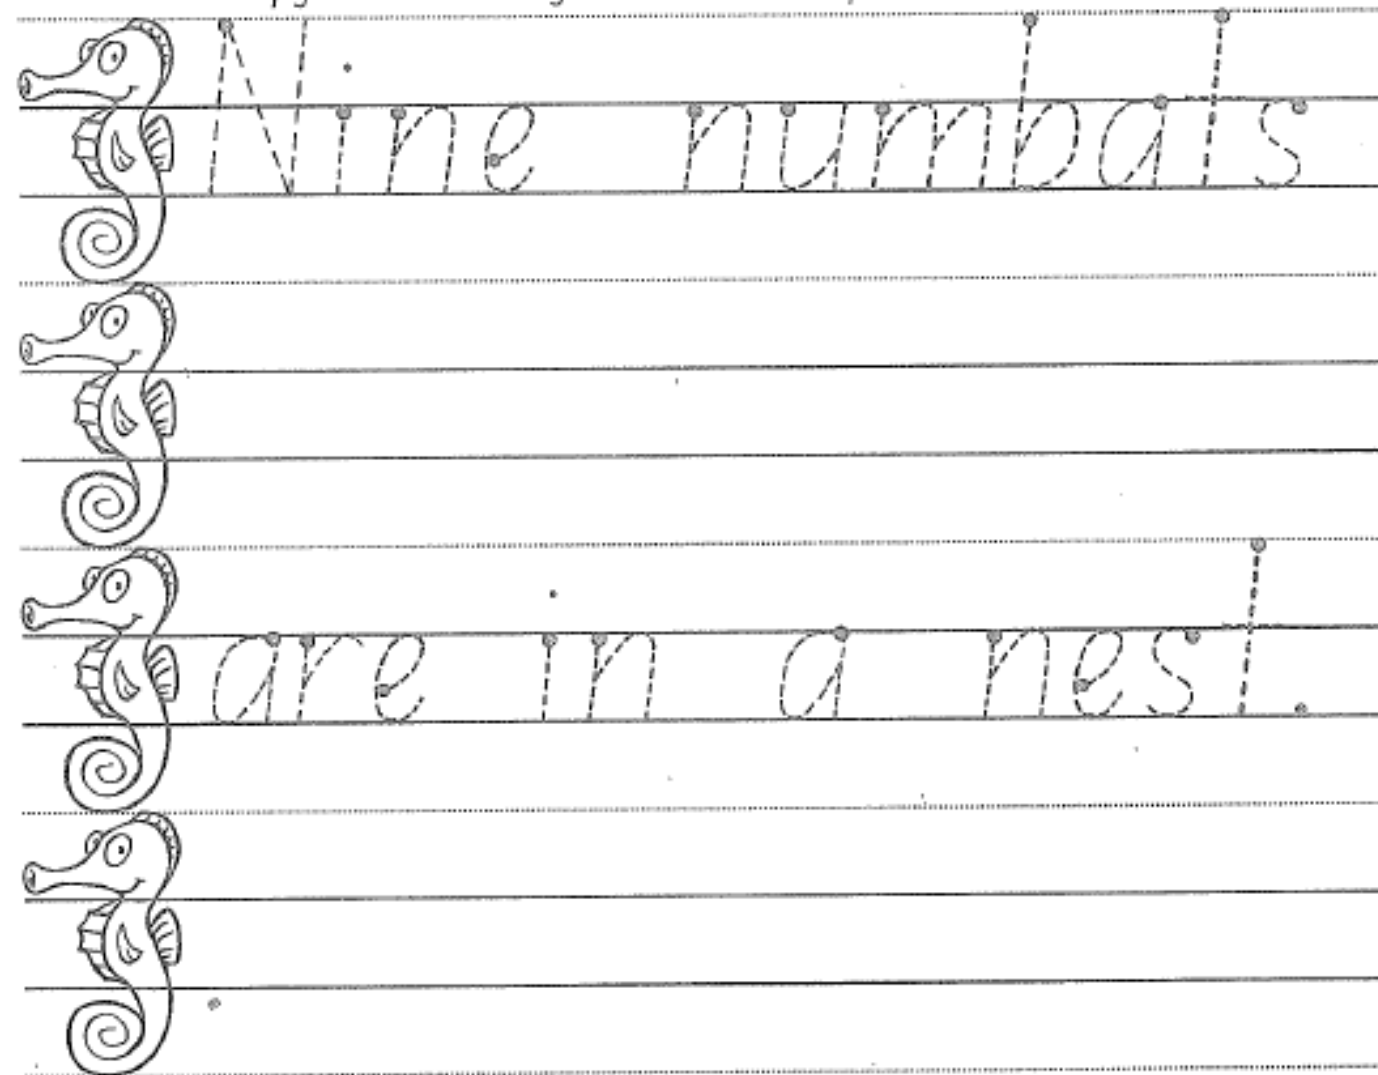 Nine numbats
are in a nest.